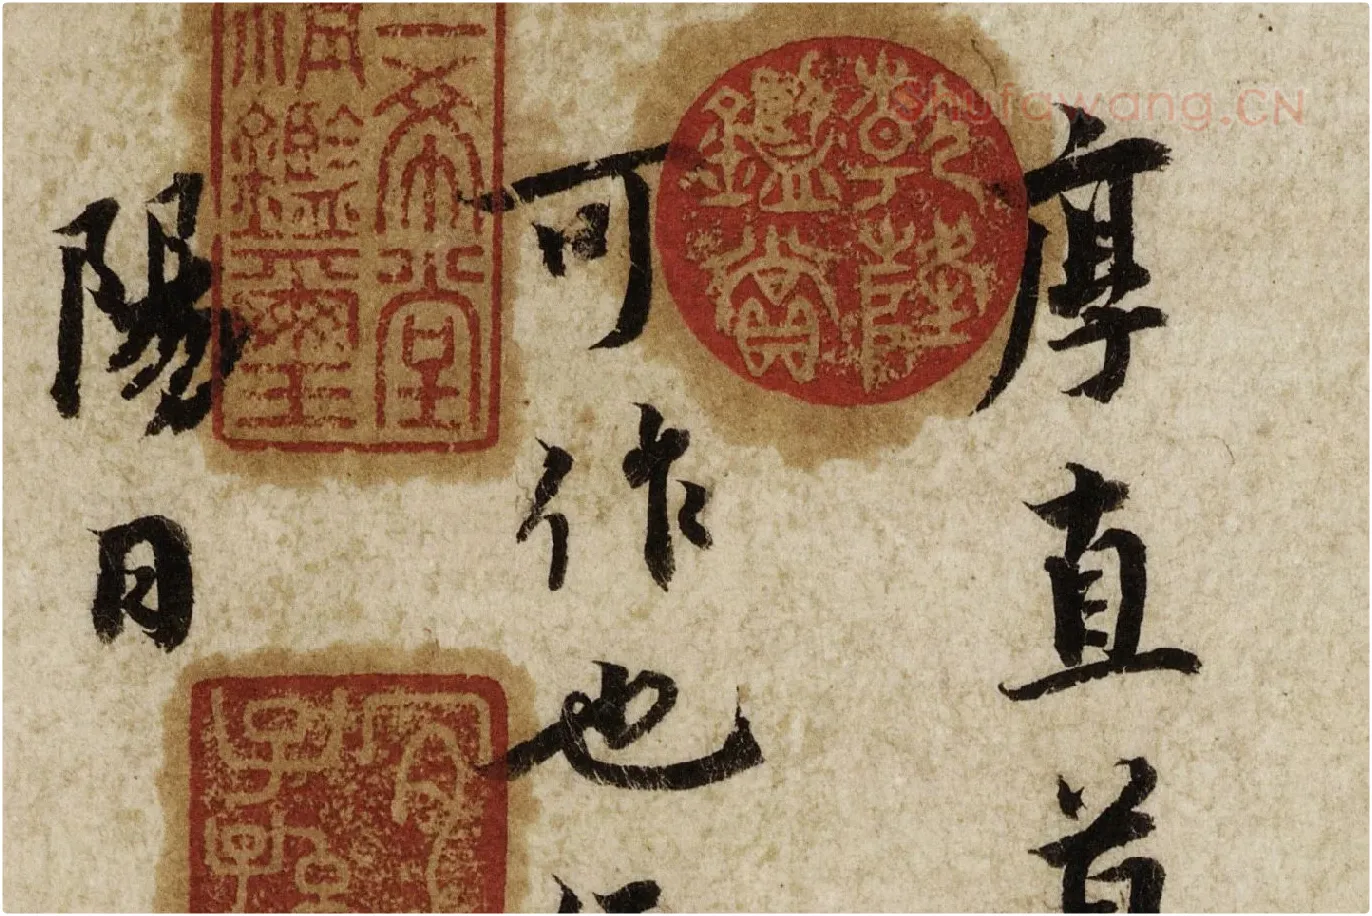 厚直首
可作也
陽日
乾隆鑑賞
三希堂精鑑璽
宜子孫
Shufawang.CN